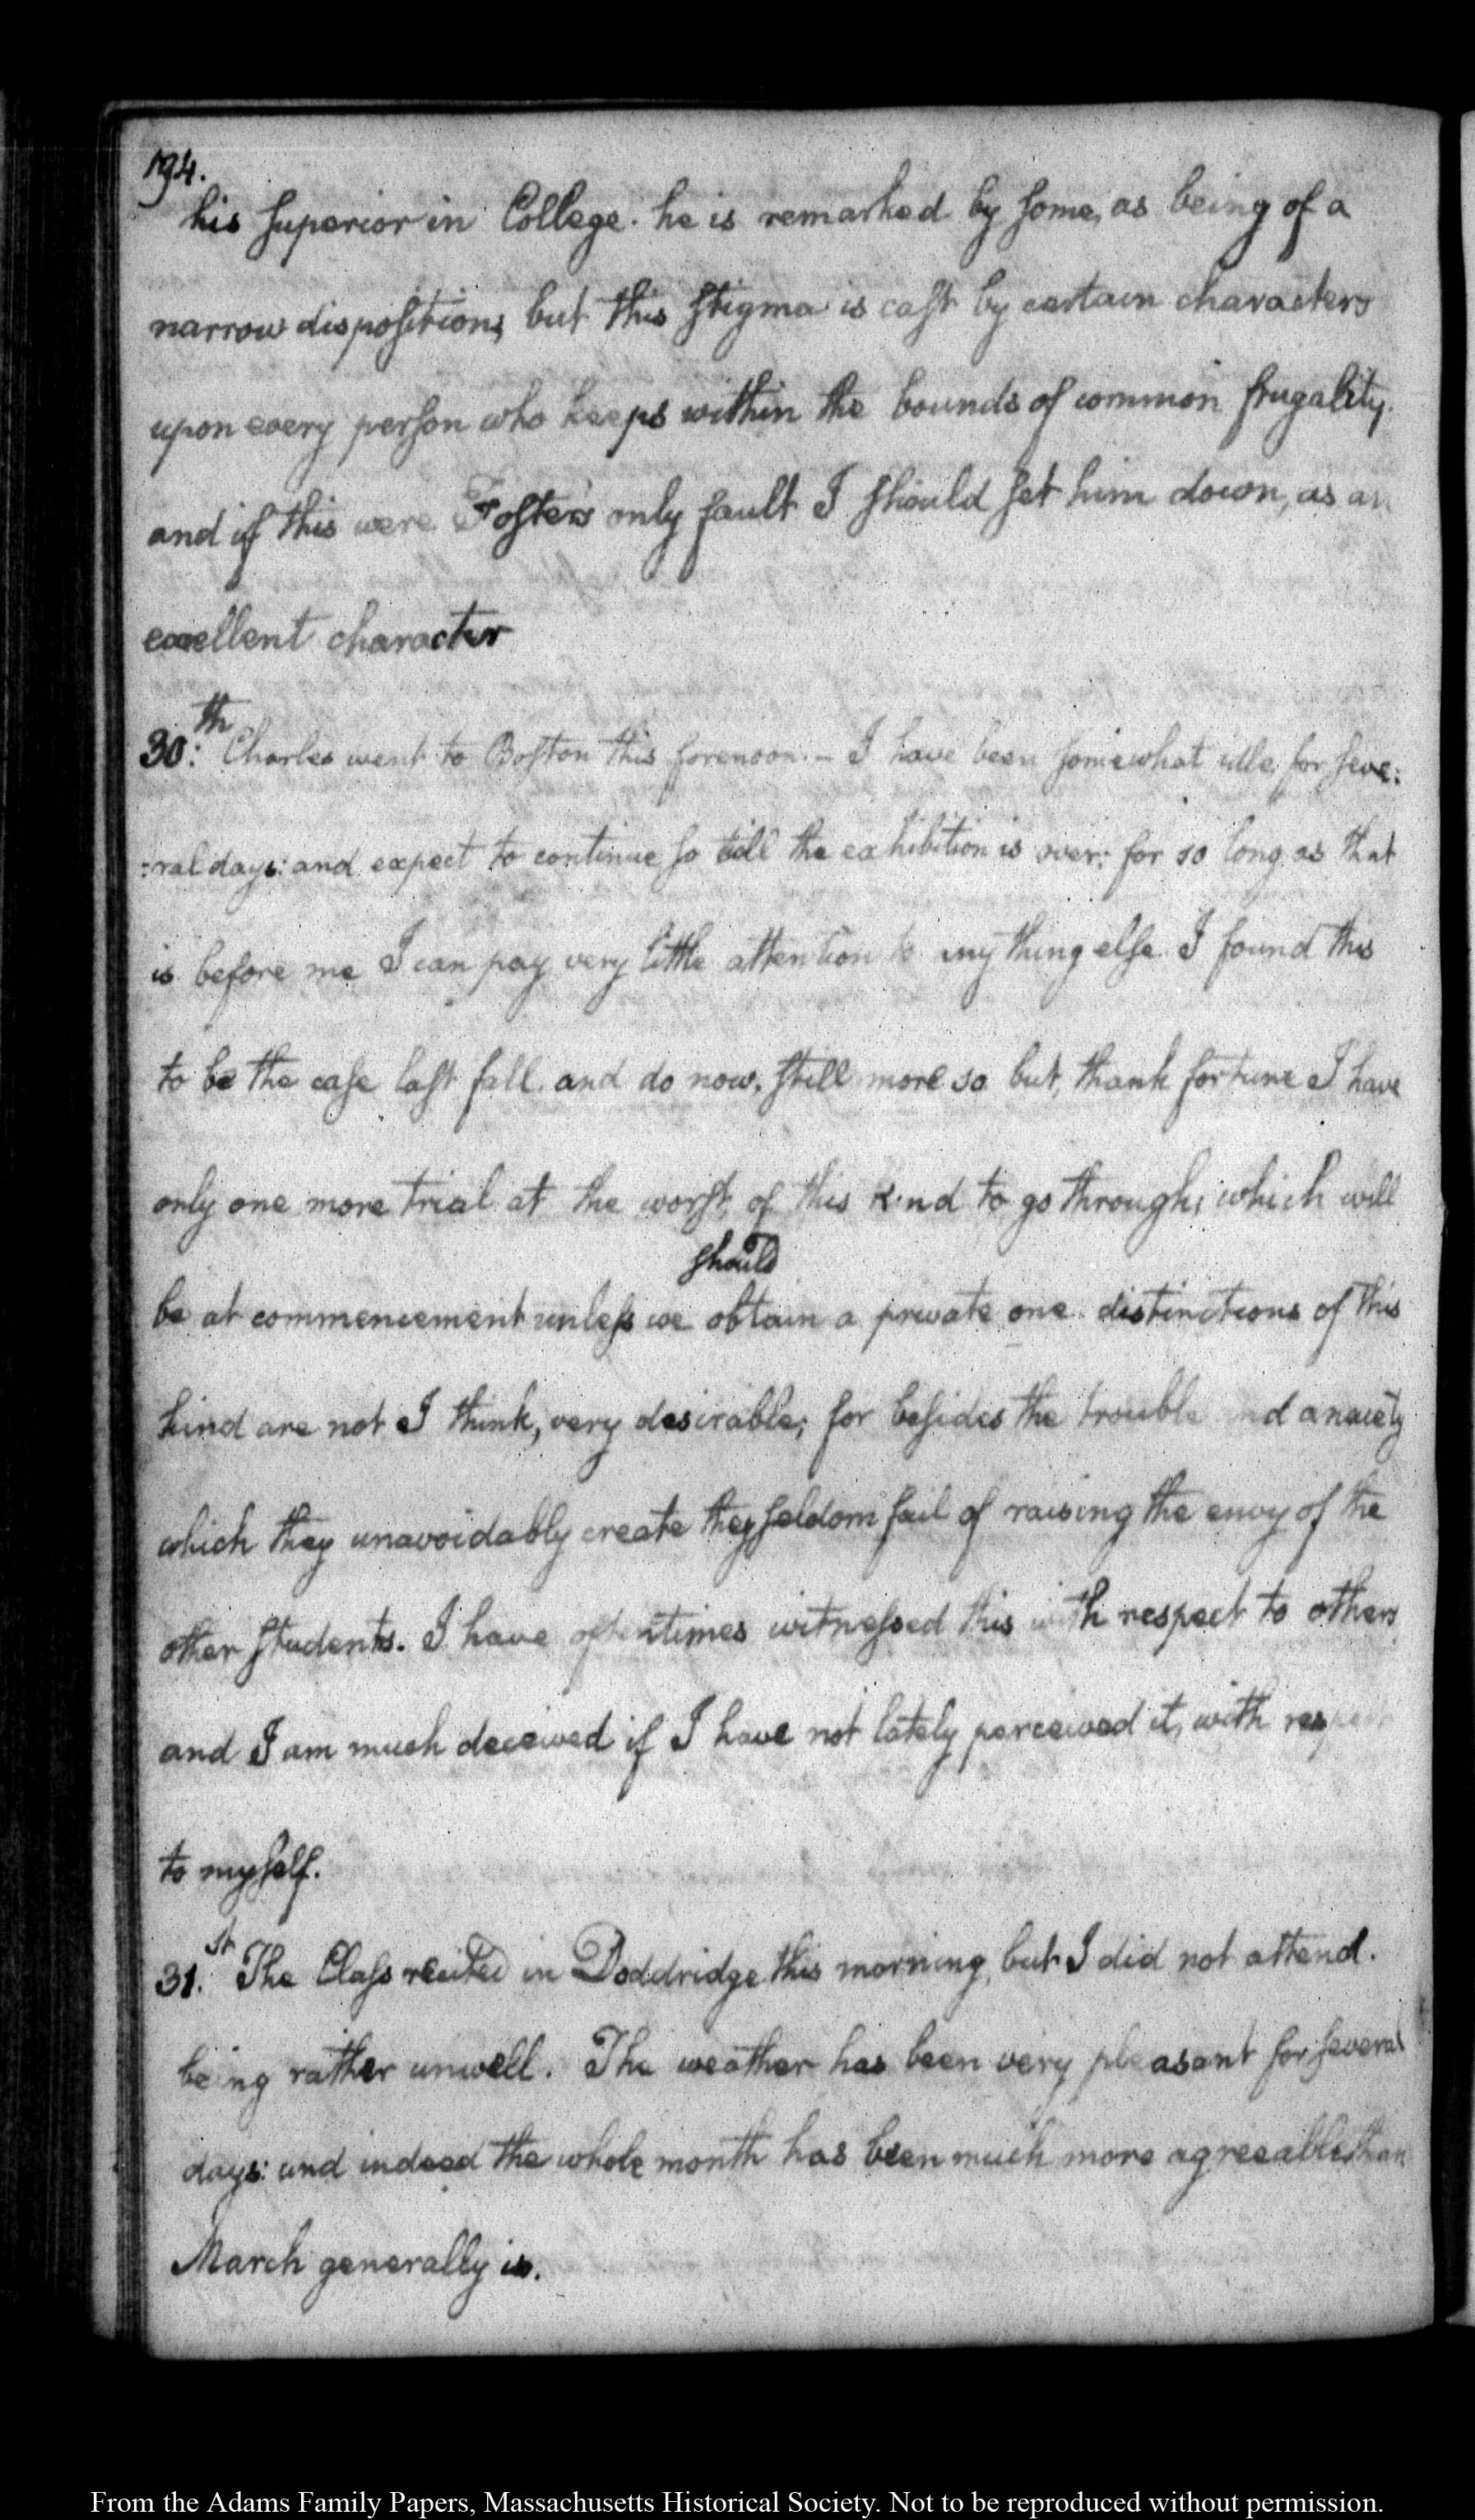 194.
his superior in College. he is remarked by some, as being of a
narrow disposition, but this stigma is cast by certain characters
upon every person who keeps within the bounds of common frugality.
and if this were Foster's only fault I should set him down, as an
excellent character
30:th Charles went to Boston this forenoon. — I have been somewhat idle, for seve:
:ral days: and expect to continue so till the exhibition is over: for so long as that
is before me I can pay very little attention to any thing else. I found this
to be the case last fall. and do now, still more so. but, thank fortune I have
only one more trial at the worst, of this kind to go through, which will
should
be at commencement unless we obtain a private one. distinctions of this
kind are not I think, very desirable; for besides the trouble and anxiety
which they unavoidably create they seldom fail of raising the envy of the
other students. I have oftentimes witnessed this with respect to others
and I am much deceived if I have not lately perceived it, with respect
to myself.
31.st The Class recited in Doddridge this morning, but I did not attend.
being rather unwell. The weather has been very pleasant for several
days: and indeed the whole month has been much more agreeable, than
March generally is.
From the Adams Family Papers, Massachusetts Historical Society. Not to be reproduced without permission.